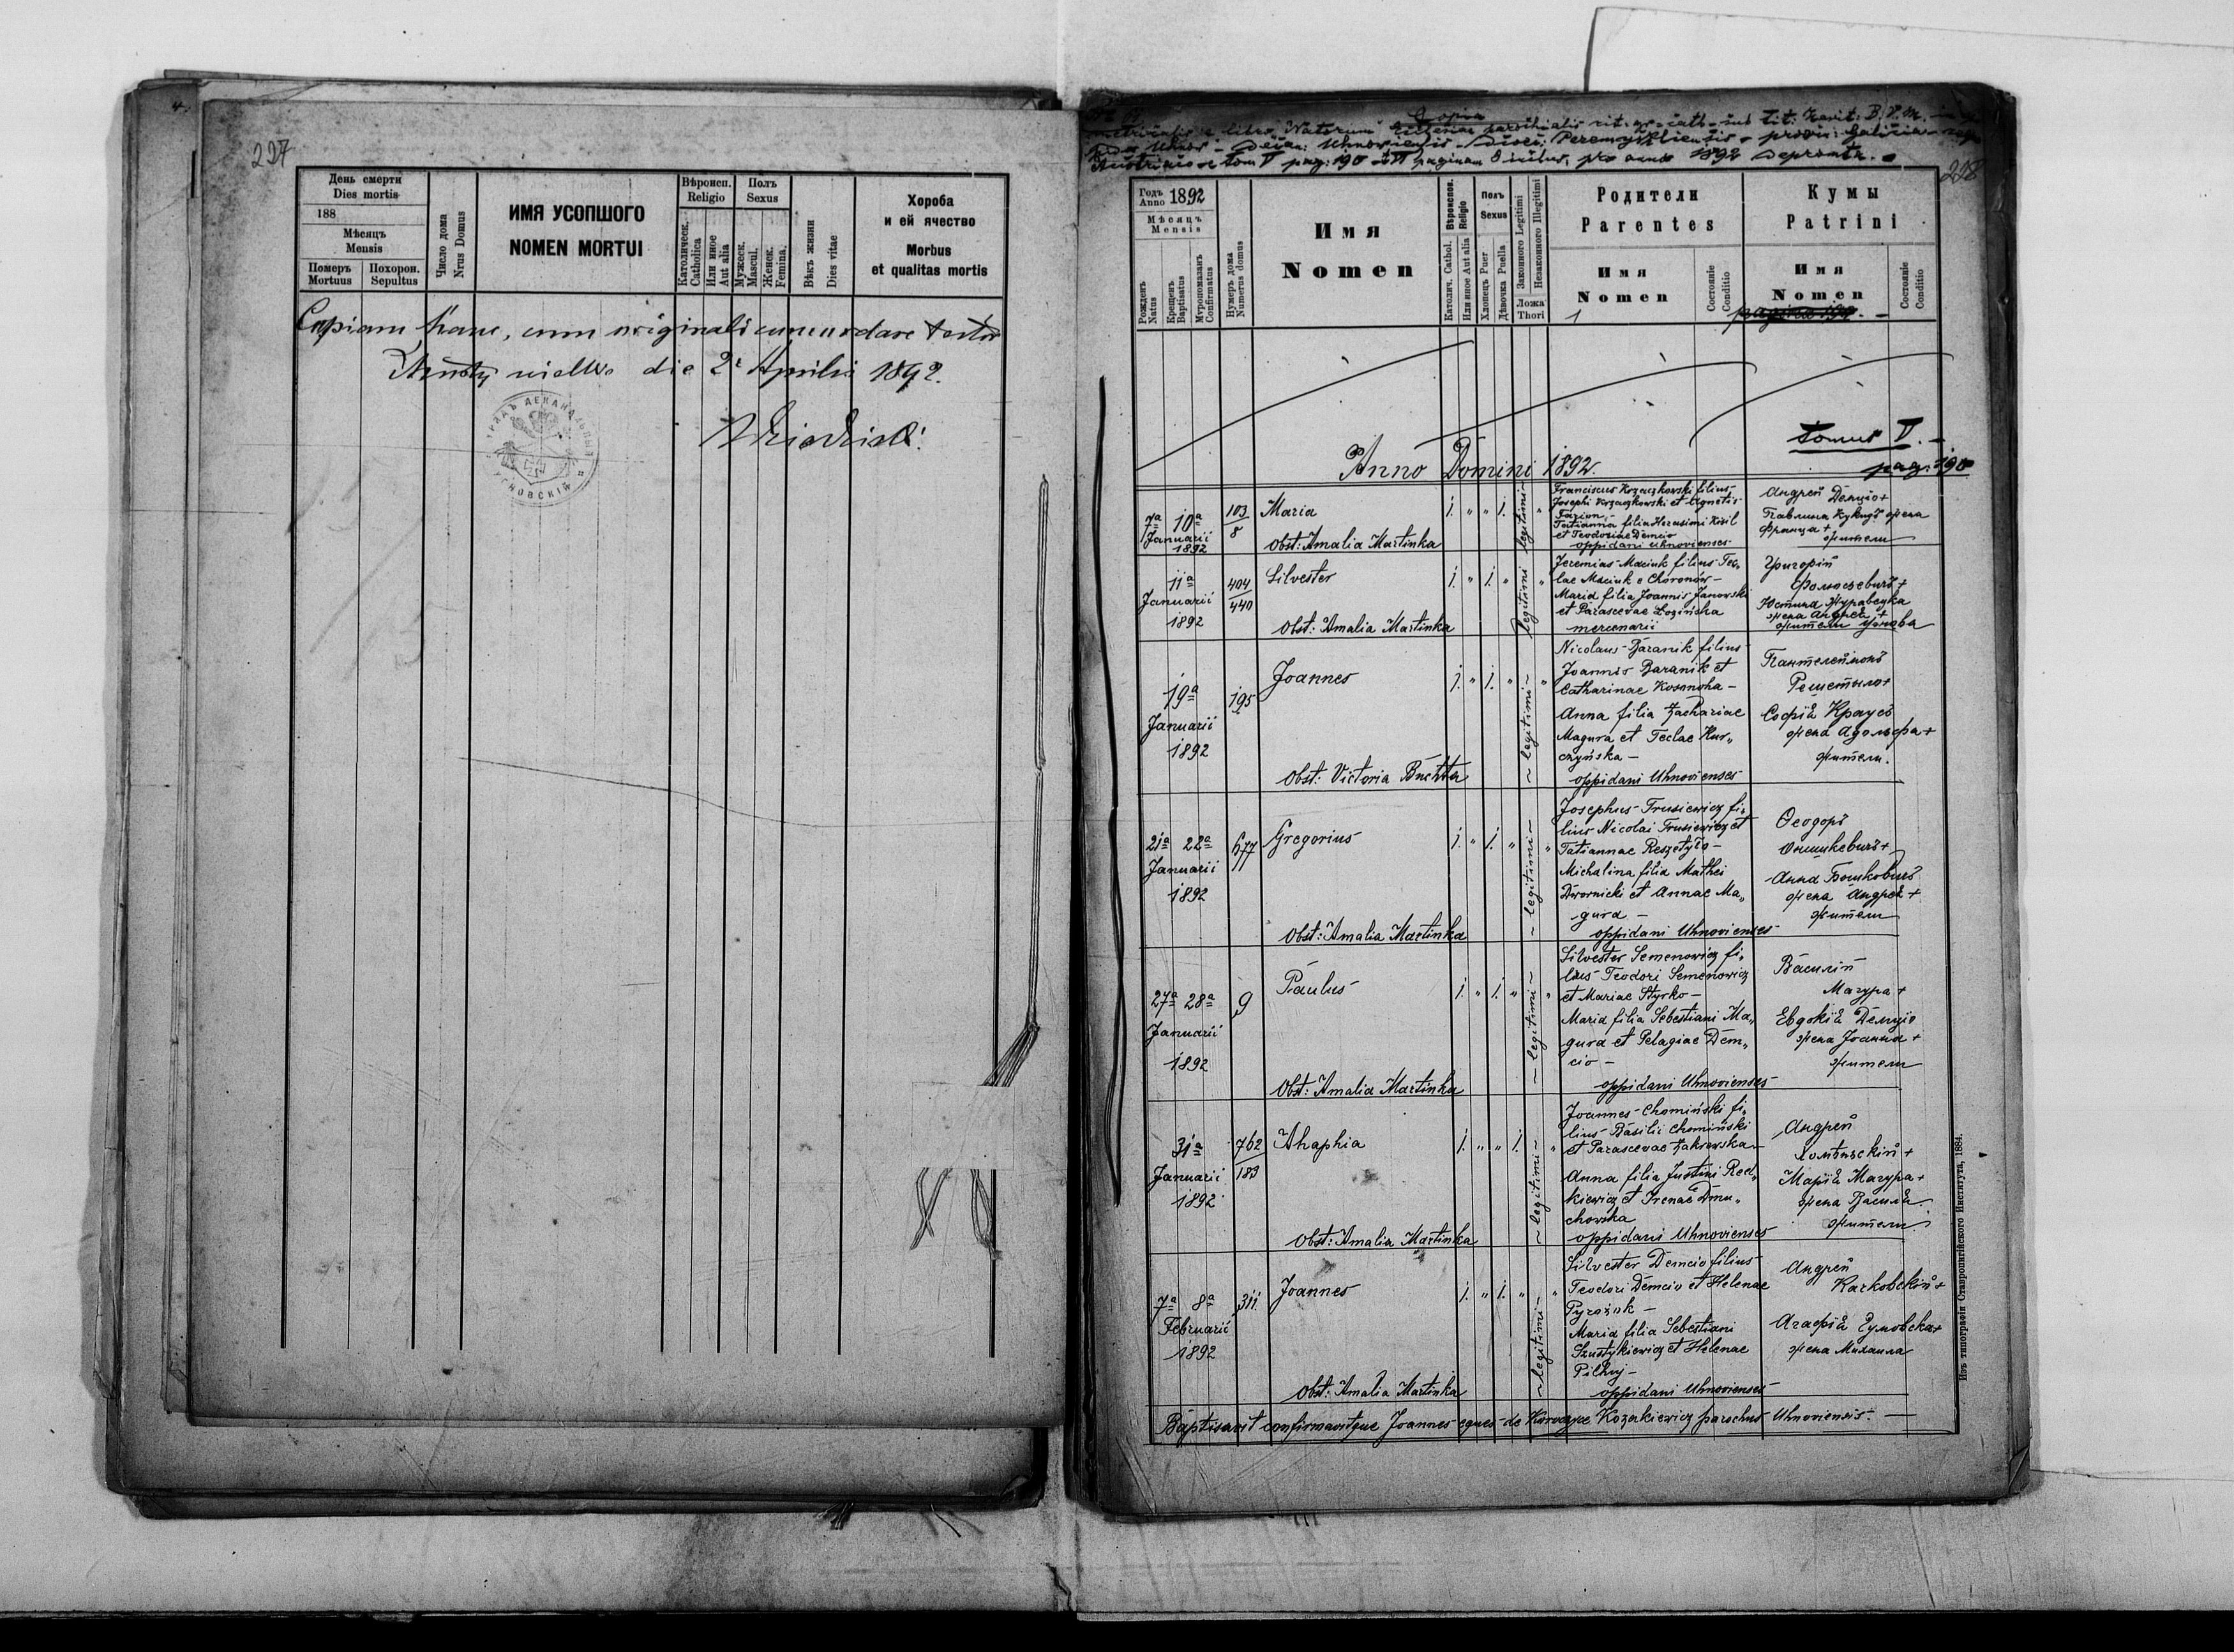 227
День смерти
Dies mortis
188
Мѣсяцъ
Mensis
Померъ
Mortuus
Похорон.
Sepultus
Число дома
Nrus Domus
ИМЯ УСОПШОГО
NOMEN MORTUI
Вѣроисп.
Religio
Католическ.
Catholica
Или иное
Aut alia
Полъ
Sexus
Мужеск.
Mascul.
Женск.
Femina.
Вѣкъ жизни
Dies vitae
Хороба
и ей ячество
Morbus
et qualitas mortis
Copiam hanc, cum originali concordare testor
die 2 Aprilis 1892.
228
Copia
metricalis e libro Natorum Ecclesiae parochialis rit. gr. cath. sub tit. Nativit. B. V. M.
Uhnov - Decan: Uhnoviensis - Dioec: Peremysliensis - provin: Galicia
Austriaco ex tom V pag: 190 paginam 8 pro anno 1892 deprompta.
Годъ
Anno 1892
Мѣсяцъ
Mensis
Рожденъ
Natus
Крещенъ
Baptisatus
Мѵропомазанъ
Confirmatus
Нумеръ дома
Numerus domus
Имя
Nomen
Вѣроиспов.
Religio
Католич. Cathol.
Или иное Aut alia
Полъ
Sexus
Хлопецъ Puer
Дѣвочка Puella
Законного Legitimi
Незаконного Illegitimi
Ложа
Thori
Родители
Parentes
Имя
Nomen
Состояніе
Conditio
Кумы
Patrini
Имя
Nomen
Состояніе
Conditio
1
Tomus V. -
Anno Domini 1892.
pag: 190
7a 10a
Januarii
1892
103
8
Maria
Obst: Amalia Martinka
1. " " 1. legitimi "
Franciscus Krzaczkowski filius
Josephi Krzaczkowski et Agnetis
Farion -
Tatianna filia Herasimi Kisil
et Teodosiae Demcio
oppidani Uhnovienses
Андрей Демцio+
Павлина жена
Франца +
жители
11a
Januarii
1892
404
440
Silvester
Obst: Amalia Martinka
1. " 1. " legitimi "
Jeremias Maciuk filius Tec„
lae Maciuk e Choronów -
Maria filia Joannis Janowski
et Parascevae Łozińska
mercenarii
Григорій
Юстина Журавецка
жена Андрея +
жители Угнова
19a
Januarii
1892
195
Joannes
Obst: Victoria Buchta
1. " 1. " legitimi "
Nicolaus Baranik filius
Joannis Baranik et
Catharinae Kosonoha -
Anna filia Zachariae
Magura et Teclae Kur„
czyńska -
oppidani Uhnovienses
Пантелеймонъ
Решетыло+
Софія Краусъ
жена Адольфа+
жители.
21a 22a
Januarii
1892
677
Gregorius
Obst: Amalia Martinka
1. " 1. " legitimi "
Josephus Trusiewicz fi„
lius Nicolai Trusiewicz et
Tatiannae Reszetyło -
Michalina filia Mathei
Dwornicki et Annae Ma„
gura -
oppidani Uhnovienses
Ѳеодоръ
Онишкевичъ+
Анна Бошковичъ
жена Андрея +
жители
27a 28a
Januarii
1892
9
Paulus
Obst: Amalia Martinka
1. " 1. " legitimi "
Silvester Semenowicz fi„
lius Teodori Semenowicz
et Mariae Styrko -
Maria filia Sebestiani Ma„
gura et Pelagiae Dem„
cio -
oppidani Uhnovienses
Василій
Магура +
Евдокія Демціо
жена Іоанна +
жители
31a
Januarii
1892
762
183
Ahaphia
Obst: Amalia Martinka
1. " " 1. legitimi "
Joannes Chomiński fi„
lius Basilii Chomiński
et Parascevae Zakrewska -
Anna filia Justini Red„
kiewicz et Irenae Dmu„
chowska
oppidani Uhnovienses
Андрей
Марія Магура+
жена Василія
жители.
7a 8a
Februarii
1892
311.
Joannes
Obst: Amalia Martinka
1. " 1. " legitimi "
Silvester Demcio filius
Teodori Demcio et Helenae
Pyrożok -
Maria filia Sebestiani
Szustykiewicz et Helenae
Pilhuj -
oppidani Uhnovienses
Андрей
Качковскій+
Агафія Гумовска+
жена Михаила
Baptisavit confirmavitque Joannes eques de Korczyce Kozakiewicz parochus Uhnoviensis. -
Изъ типографіи Ставропигійского Института, 1884.